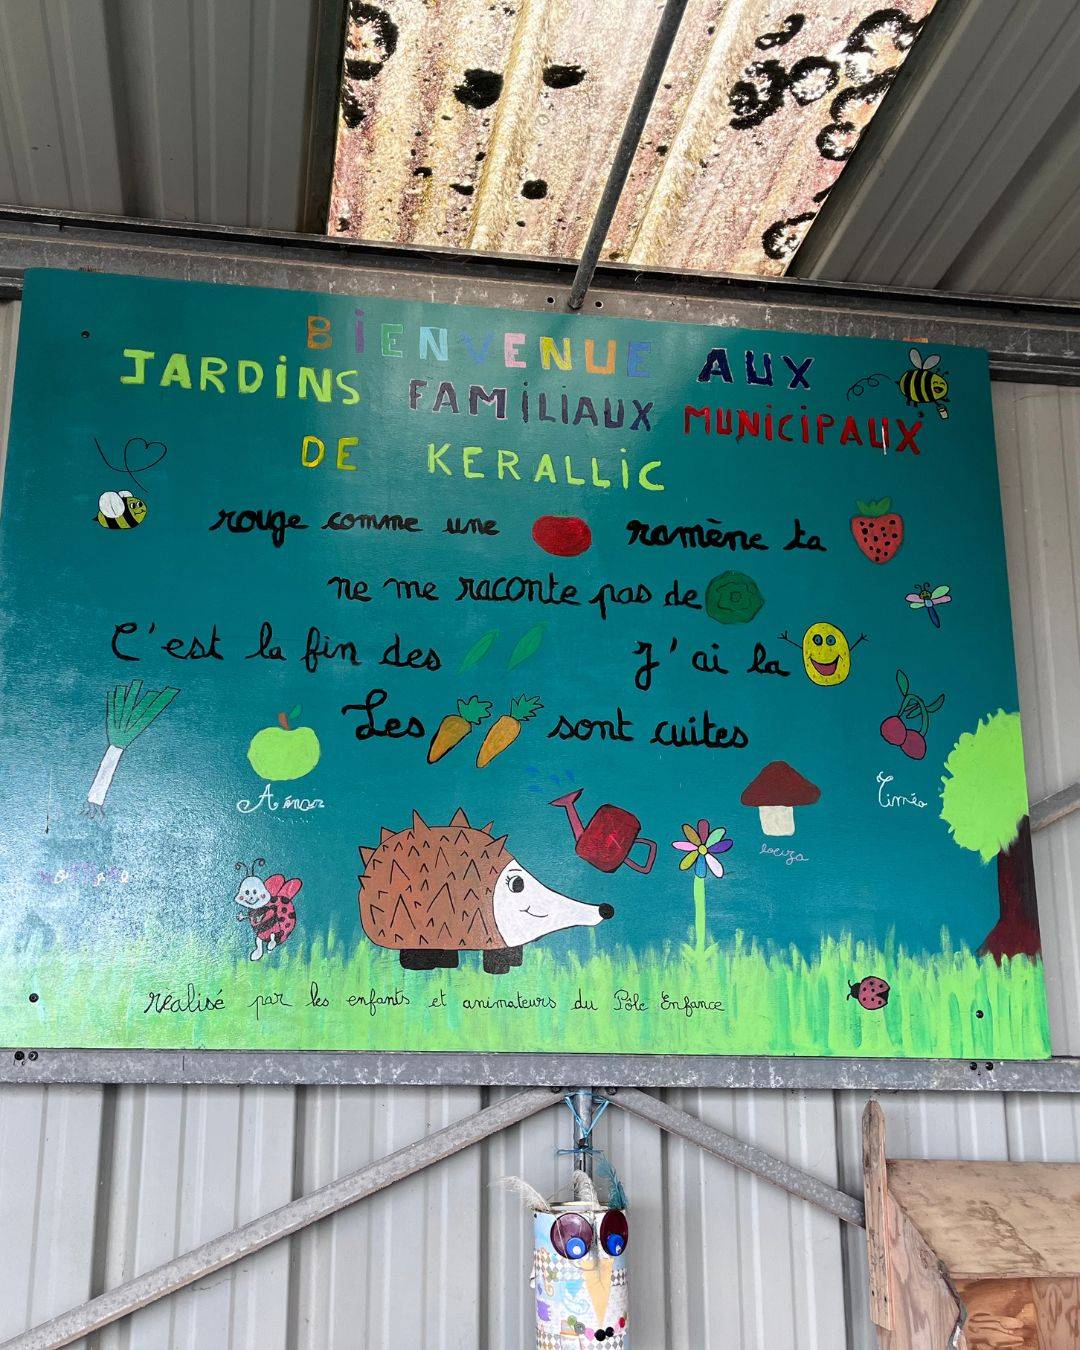 BIENVENUE AUX
JARDINS FAMILIAUX MUNICIPAUX
DE KERALLIC
rouge comme une ramène ta
ne me raconte pas de
C'est la fin des J'ai la
Les sont cuites
Timéo
louiza
réalisé par les enfants et animateurs du Pôle Enfance